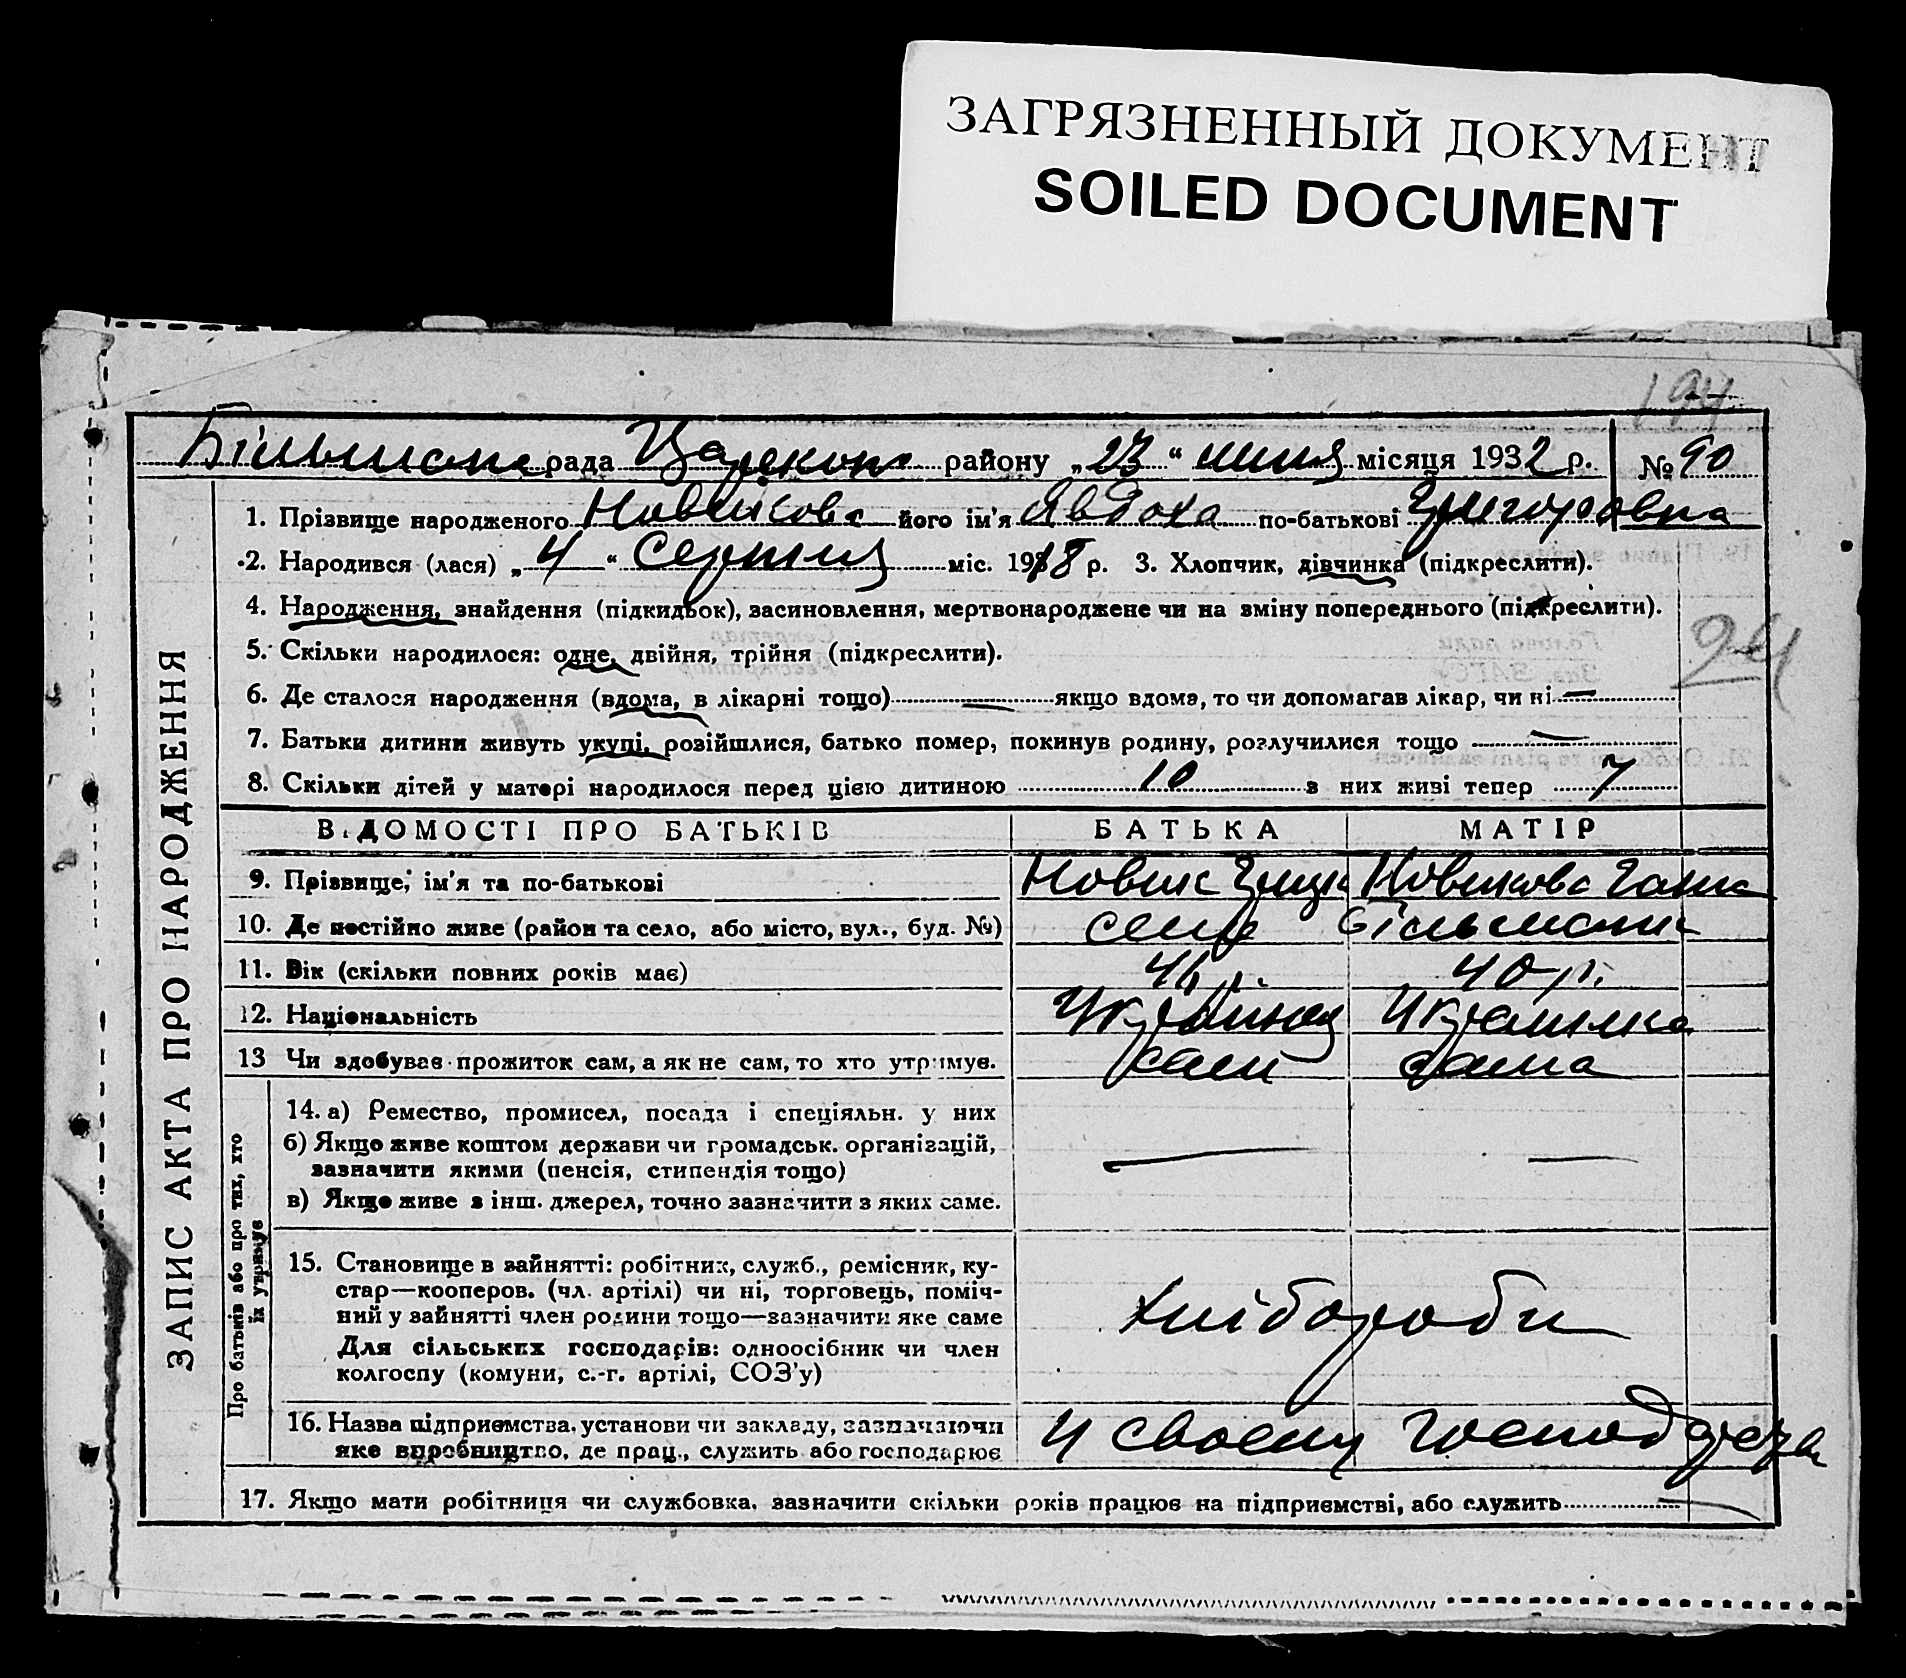 ЗАГРЯЗНЕННЫЙ ДОКУМЕНТ
SOILED DOCUMENT
194
рада району „23“ липня місяця 1932 р. № 90
1. Прізвище народженого Новикова його ім'я Явдоха по-батькові Григоровна
2. Народився (лася) „4“ Серпня міс. 1918 р. 3. Хлопчик, дівчинка (підкреслити).
4. Народження, знайдення (підкидьок), засиновлення, мертвонароджене чи на зміну попереднього (підкреслити).
24
5. Скільки народилося: одне, двійня, трійня (підкреслити).
6. Де сталося народження (вдома, в лікарні тощо) — якщо вдома, то чи допомагав лікар, чи ні —
7. Батьки дитини живуть укупі, розійшлися, батько помер, покинув родину, розлучилися тощо —
8. Скільки дітей у матері народилося перед цією дитиною 10 з них живі тепер 7
ВІДОМОСТІ ПРО БАТЬКІВ БАТЬКА МАТІР
9. Прізвище, ім'я та по-батькові Новик Новикова Ганна
10. Де постійно живе (район та село, або місто, вул., буд. №) село
11. Вік (скільки повних років має) 40 р.
12. Національність Українец Українка
13 Чи здобував прожиток сам, а як не сам, то хто утримує. сам сама
14. а) Ремество, промисел, посада і спеціяльн. у них
б) Якщо живе коштом держави чи громадськ. організацій,
зазначити якими (пенсія, стипендія тощо) — —
в) Якщо живе з інш. джерел, точно зазначити з яких саме.
15. Становище в зайнятті: робітник, служб., ремісник, ку-
стар—кооперов. (чл. артілі) чи ні, торговець, поміч-
ний у зайнятті член родини тощо—зазначити яке саме
хліборобы
Для сільських господарів: одноосібник чи член
колгоспу (комуни, с.-г. артілі, СОЗ'у)
16. Назва підприємства, установи чи закладу, зазначаючи
яке виробництво, де прац., служить або господарює
У своему
17. Якщо мати робітниця чи службовка, зазначити скільки років працює на підприємстві, або служить —
ЗАПИС АКТА ПРО НАРОДЖЕННЯ
Про батьків або про тих, хто
їх утримує